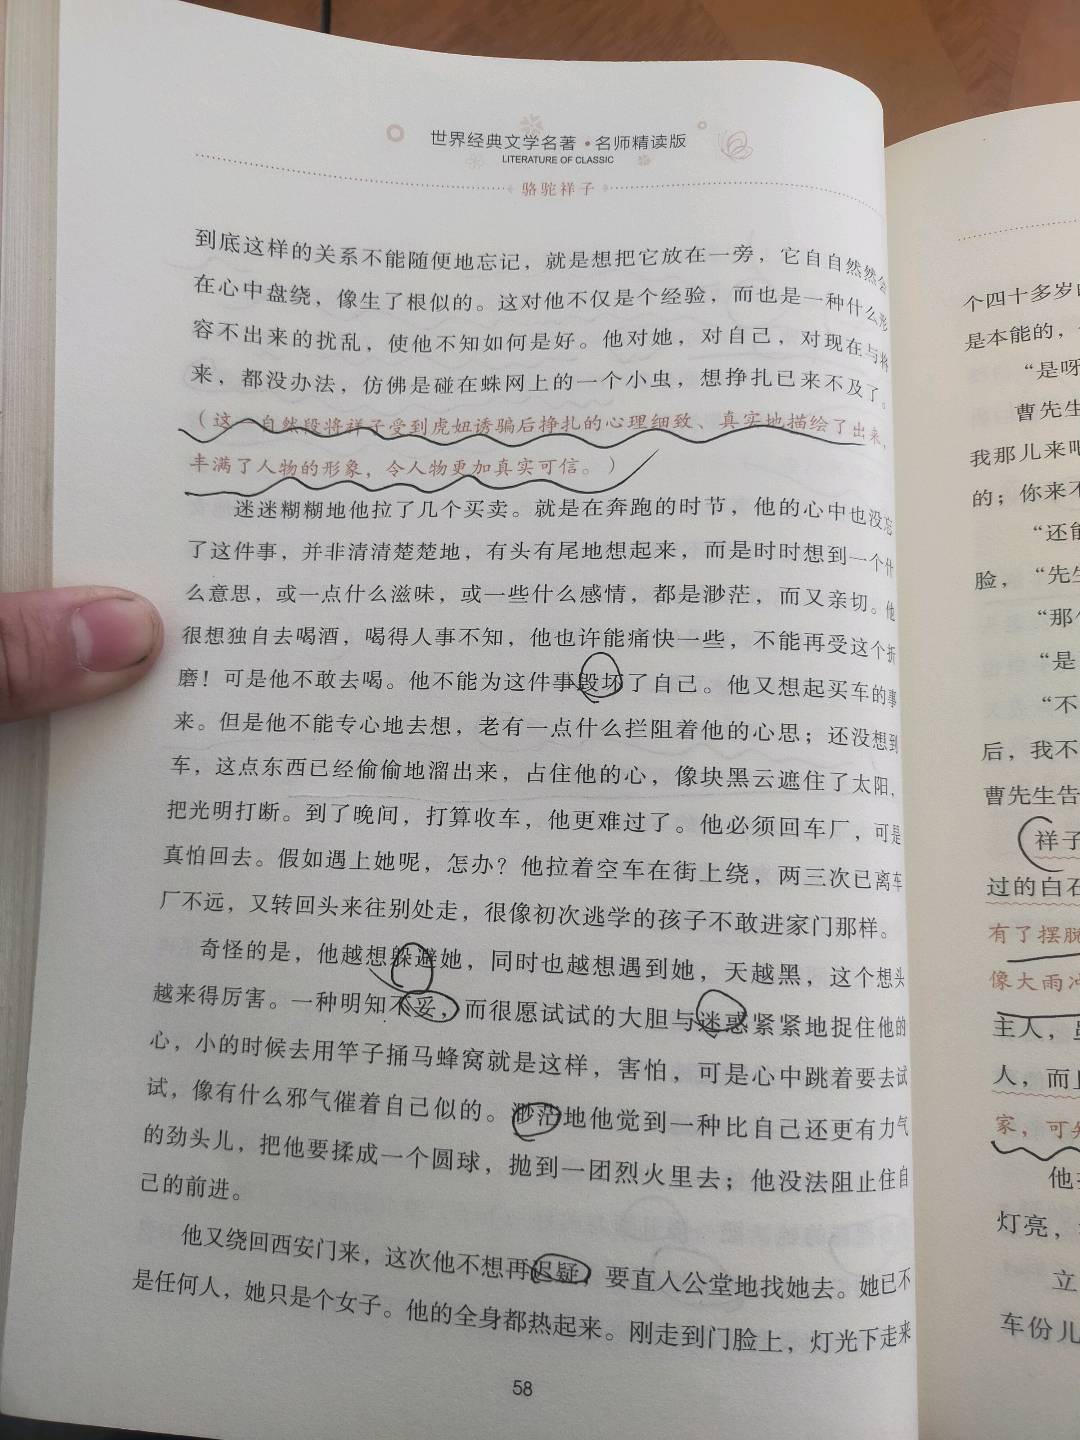 世界经典文学名著·名师精读版
LITERATURE OF CLASSIC
骆驼祥子
到底这样的关系不能随便地忘记，就是想把它放在一旁，它自自然然会
在心中盘绕，像生了根似的。这对他不仅是个经验，而也是一种什么形
容不出来的扰乱，使他不知如何是好。他对她，对自己，对现在与将
来，都没办法，仿佛是碰在蛛网上的一个小虫，想挣扎已来不及了。
（这一自然段将祥子受到虎妞诱骗后挣扎的心理细致、真实地描绘了出来，
丰满了人物的形象，令人物更加真实可信。）
迷迷糊糊地他拉了几个买卖。就是在奔跑的时节，他的心中也没忘
了这件事，并非清清楚楚地，有头有尾地想起来，而是时时想到一个什
么意思，或一点什么滋味，或一些什么感情，都是渺茫，而又亲切。他
很想独自去喝酒，喝得人事不知，他也许能痛快一些，不能再受这个折
磨！可是他不敢去喝。他不能为这件事毁坏了自己。他又想起买车的事
来。但是他不能专心地去想，老有一点什么拦阻着他的心思；还没想到
车，这点东西已经偷偷地溜出来，占住他的心，像块黑云遮住了太阳，
把光明打断。到了晚间，打算收车，他更难过了。他必须回车厂，可是
真怕回去。假如遇上她呢，怎办？他拉着空车在街上绕，两三次已离车
厂不远，又转回头来往别处走，很像初次逃学的孩子不敢进家门那样。
奇怪的是，他越想躲避她，同时也越想遇到她，天越黑，这个想头
越来得厉害。一种明知不妥，而很愿试试的大胆与迷惑紧紧地捉住他的
心，小的时候去用竿子捅马蜂窝就是这样，害怕，可是心中跳着要去试
试，像有什么邪气催着自己似的。渺茫地他觉到一种比自己还更有力气
的劲头儿，把他要揉成一个圆球，抛到一团烈火里去；他没法阻止住自
己的前进。
他又绕回西安门来，这次他不想再迟疑，要直入公堂地找她去。她已不
是任何人，她只是个女子。他的全身都热起来。刚走到门脸上，灯光下走来
58
个四十多岁
是本能的，
“是呀
曹先生
我那儿来吧
的；你来不
“还能
脸，“先生
“那个
“是
“不
后，我不
曹先生告
祥子
过的白石
有了摆脱
像大雨冲
主人，
人，而且
家，可
他
灯亮，
立
车份儿